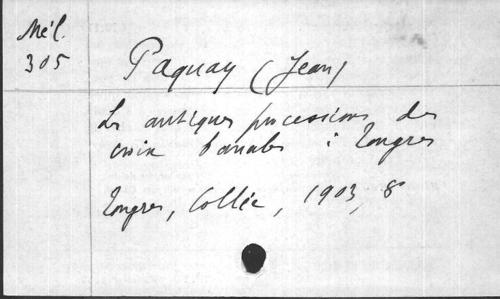 Mél.
305
Paquay (Jean)
Les antiques processions des
croix banales à Tongres
Tongres, Collée, 1903, 8°